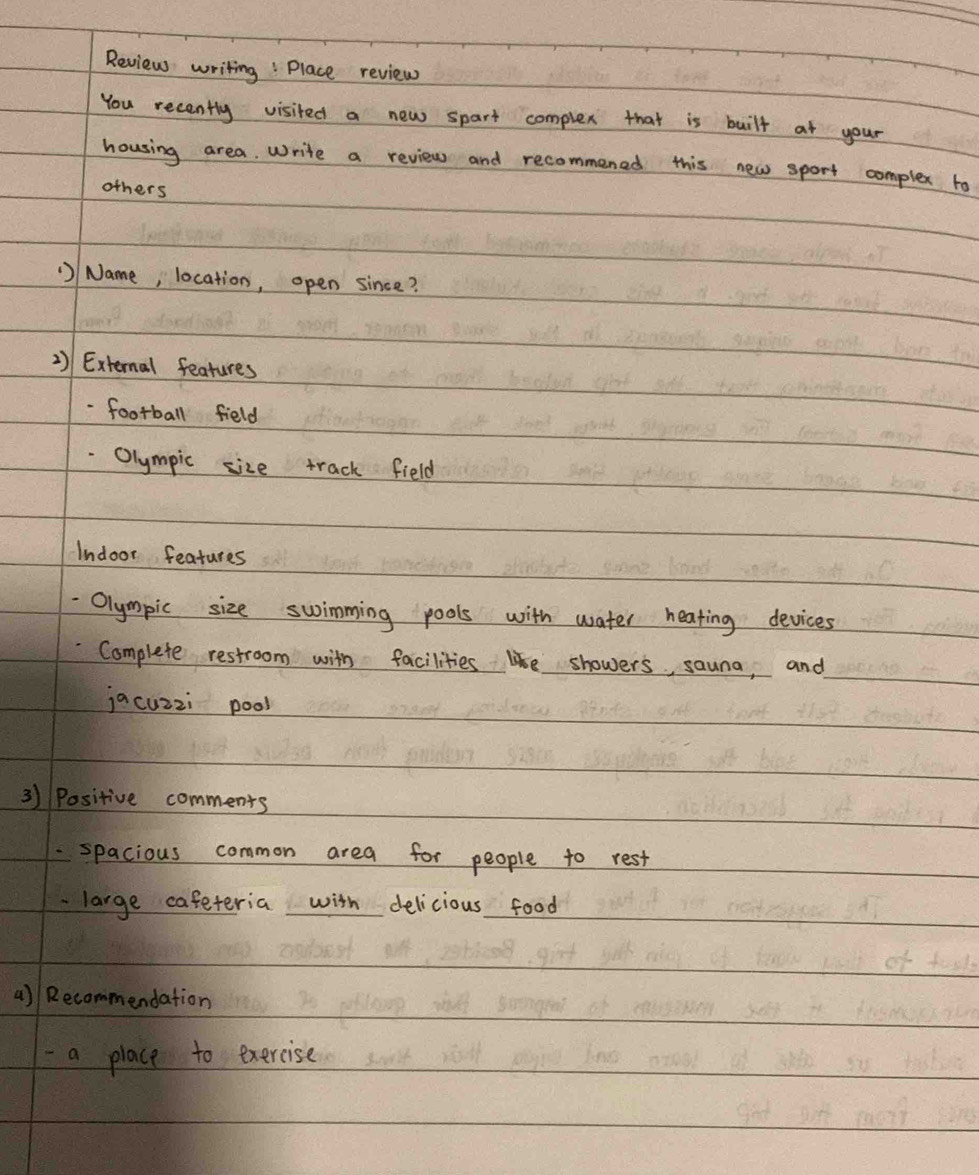 Review writing : Place review
You recently visited a new spart complex that is built at your
housing area. Write a review and recommened this new sport complex to
others
1) Name, location, open since?
2) External features
- football field
- Olympic size track field
Indoor features
- Olympic size swimming pools with water heating devices
- Complete restroom with facilities like showers, sauna, and
jacuzzi pool
3) Positive comments
- spacious common area for people to rest
- large cafeteria with delicious food
4) Recommendation
- a place to exercise